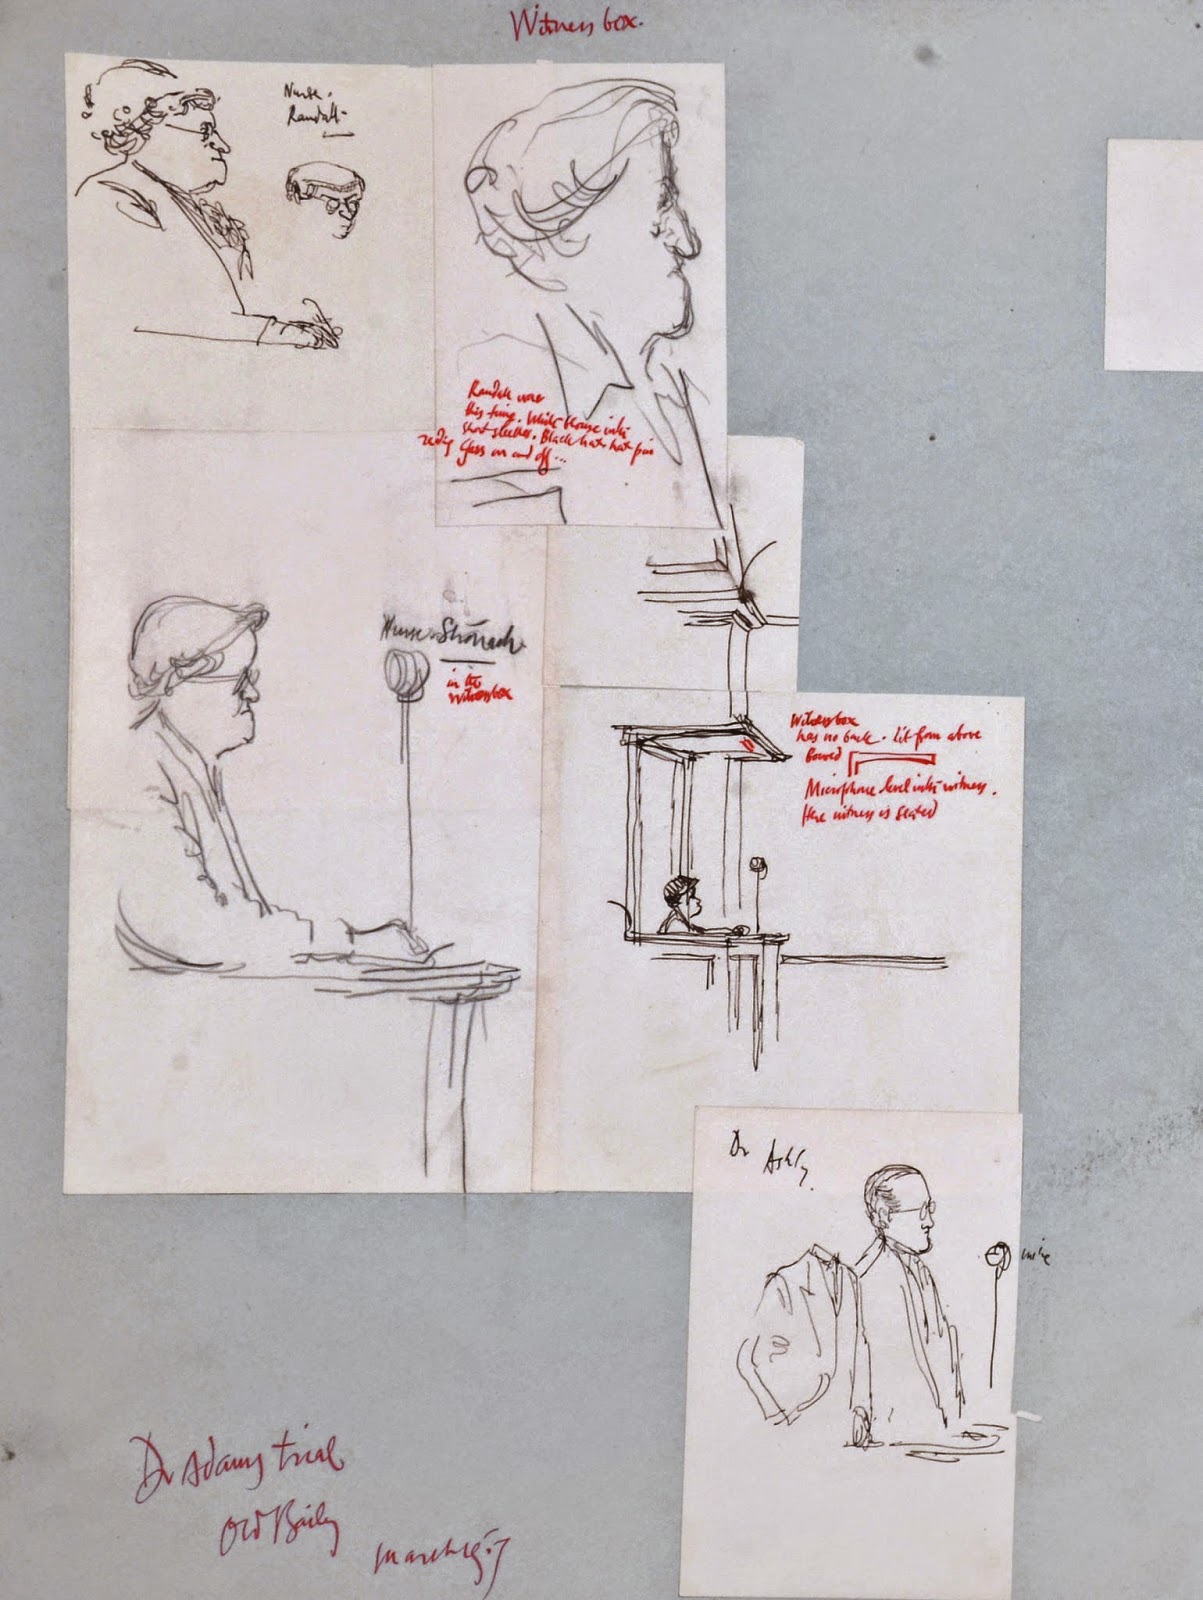 Witness box.
Nurse.
Randall-
Randall wore
this time. White blouse with
short sleeves. Black hat & hat pin
glass on and off ...
Nurse. Stronach
in the
witness box
Witness box
has no back. Lit from above
Boxed
Microphone level with witness.
Here witness is seated
Dr Ashby.
mike
Dr Adams trial
Old Bailey